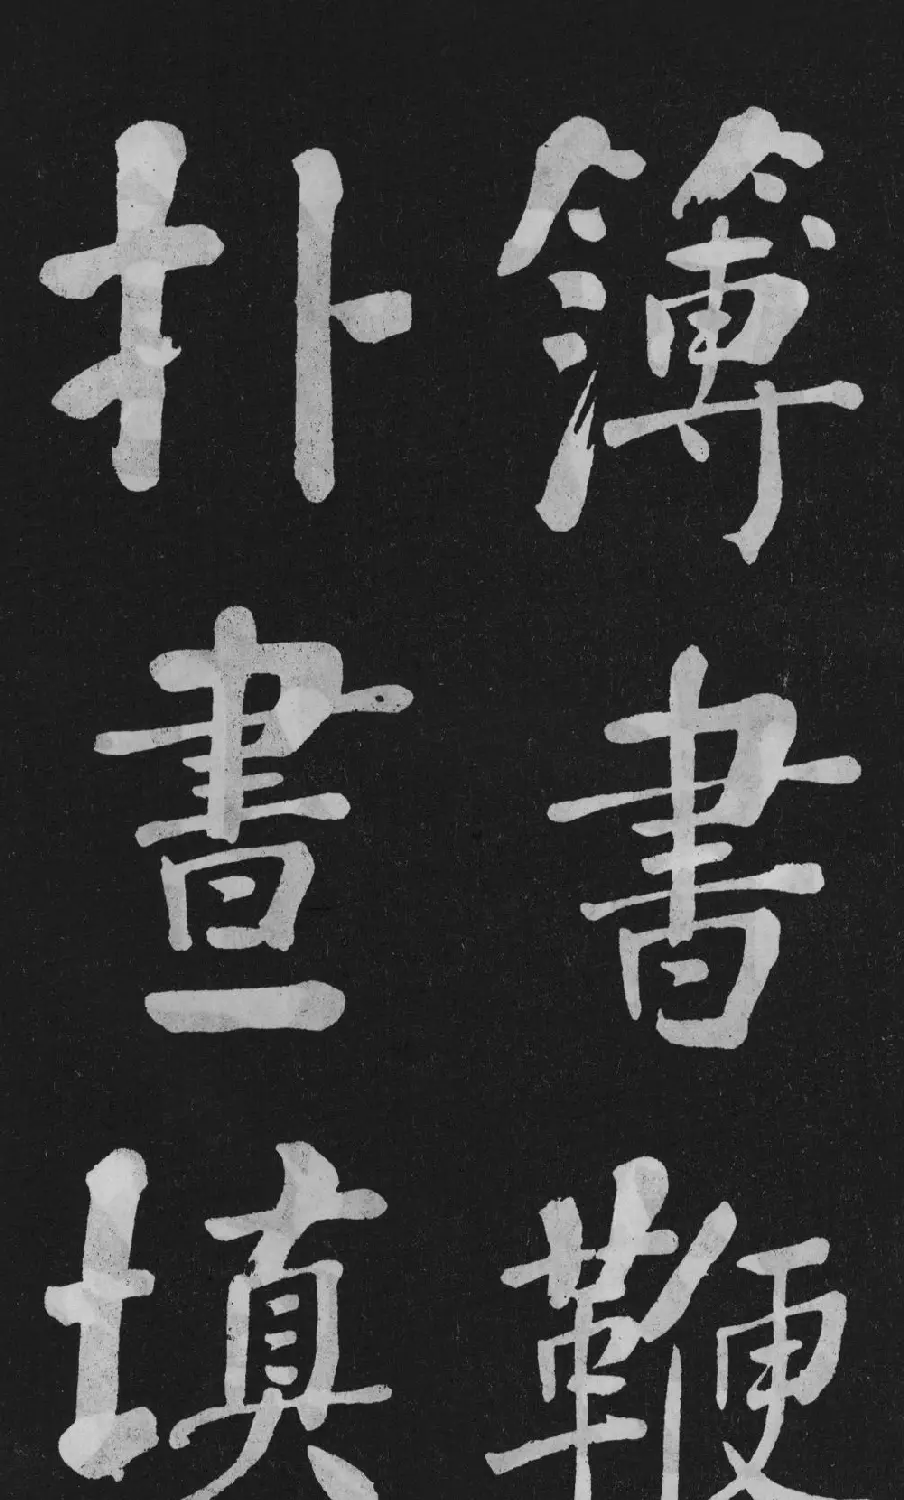 簿書鞭
扑晝填